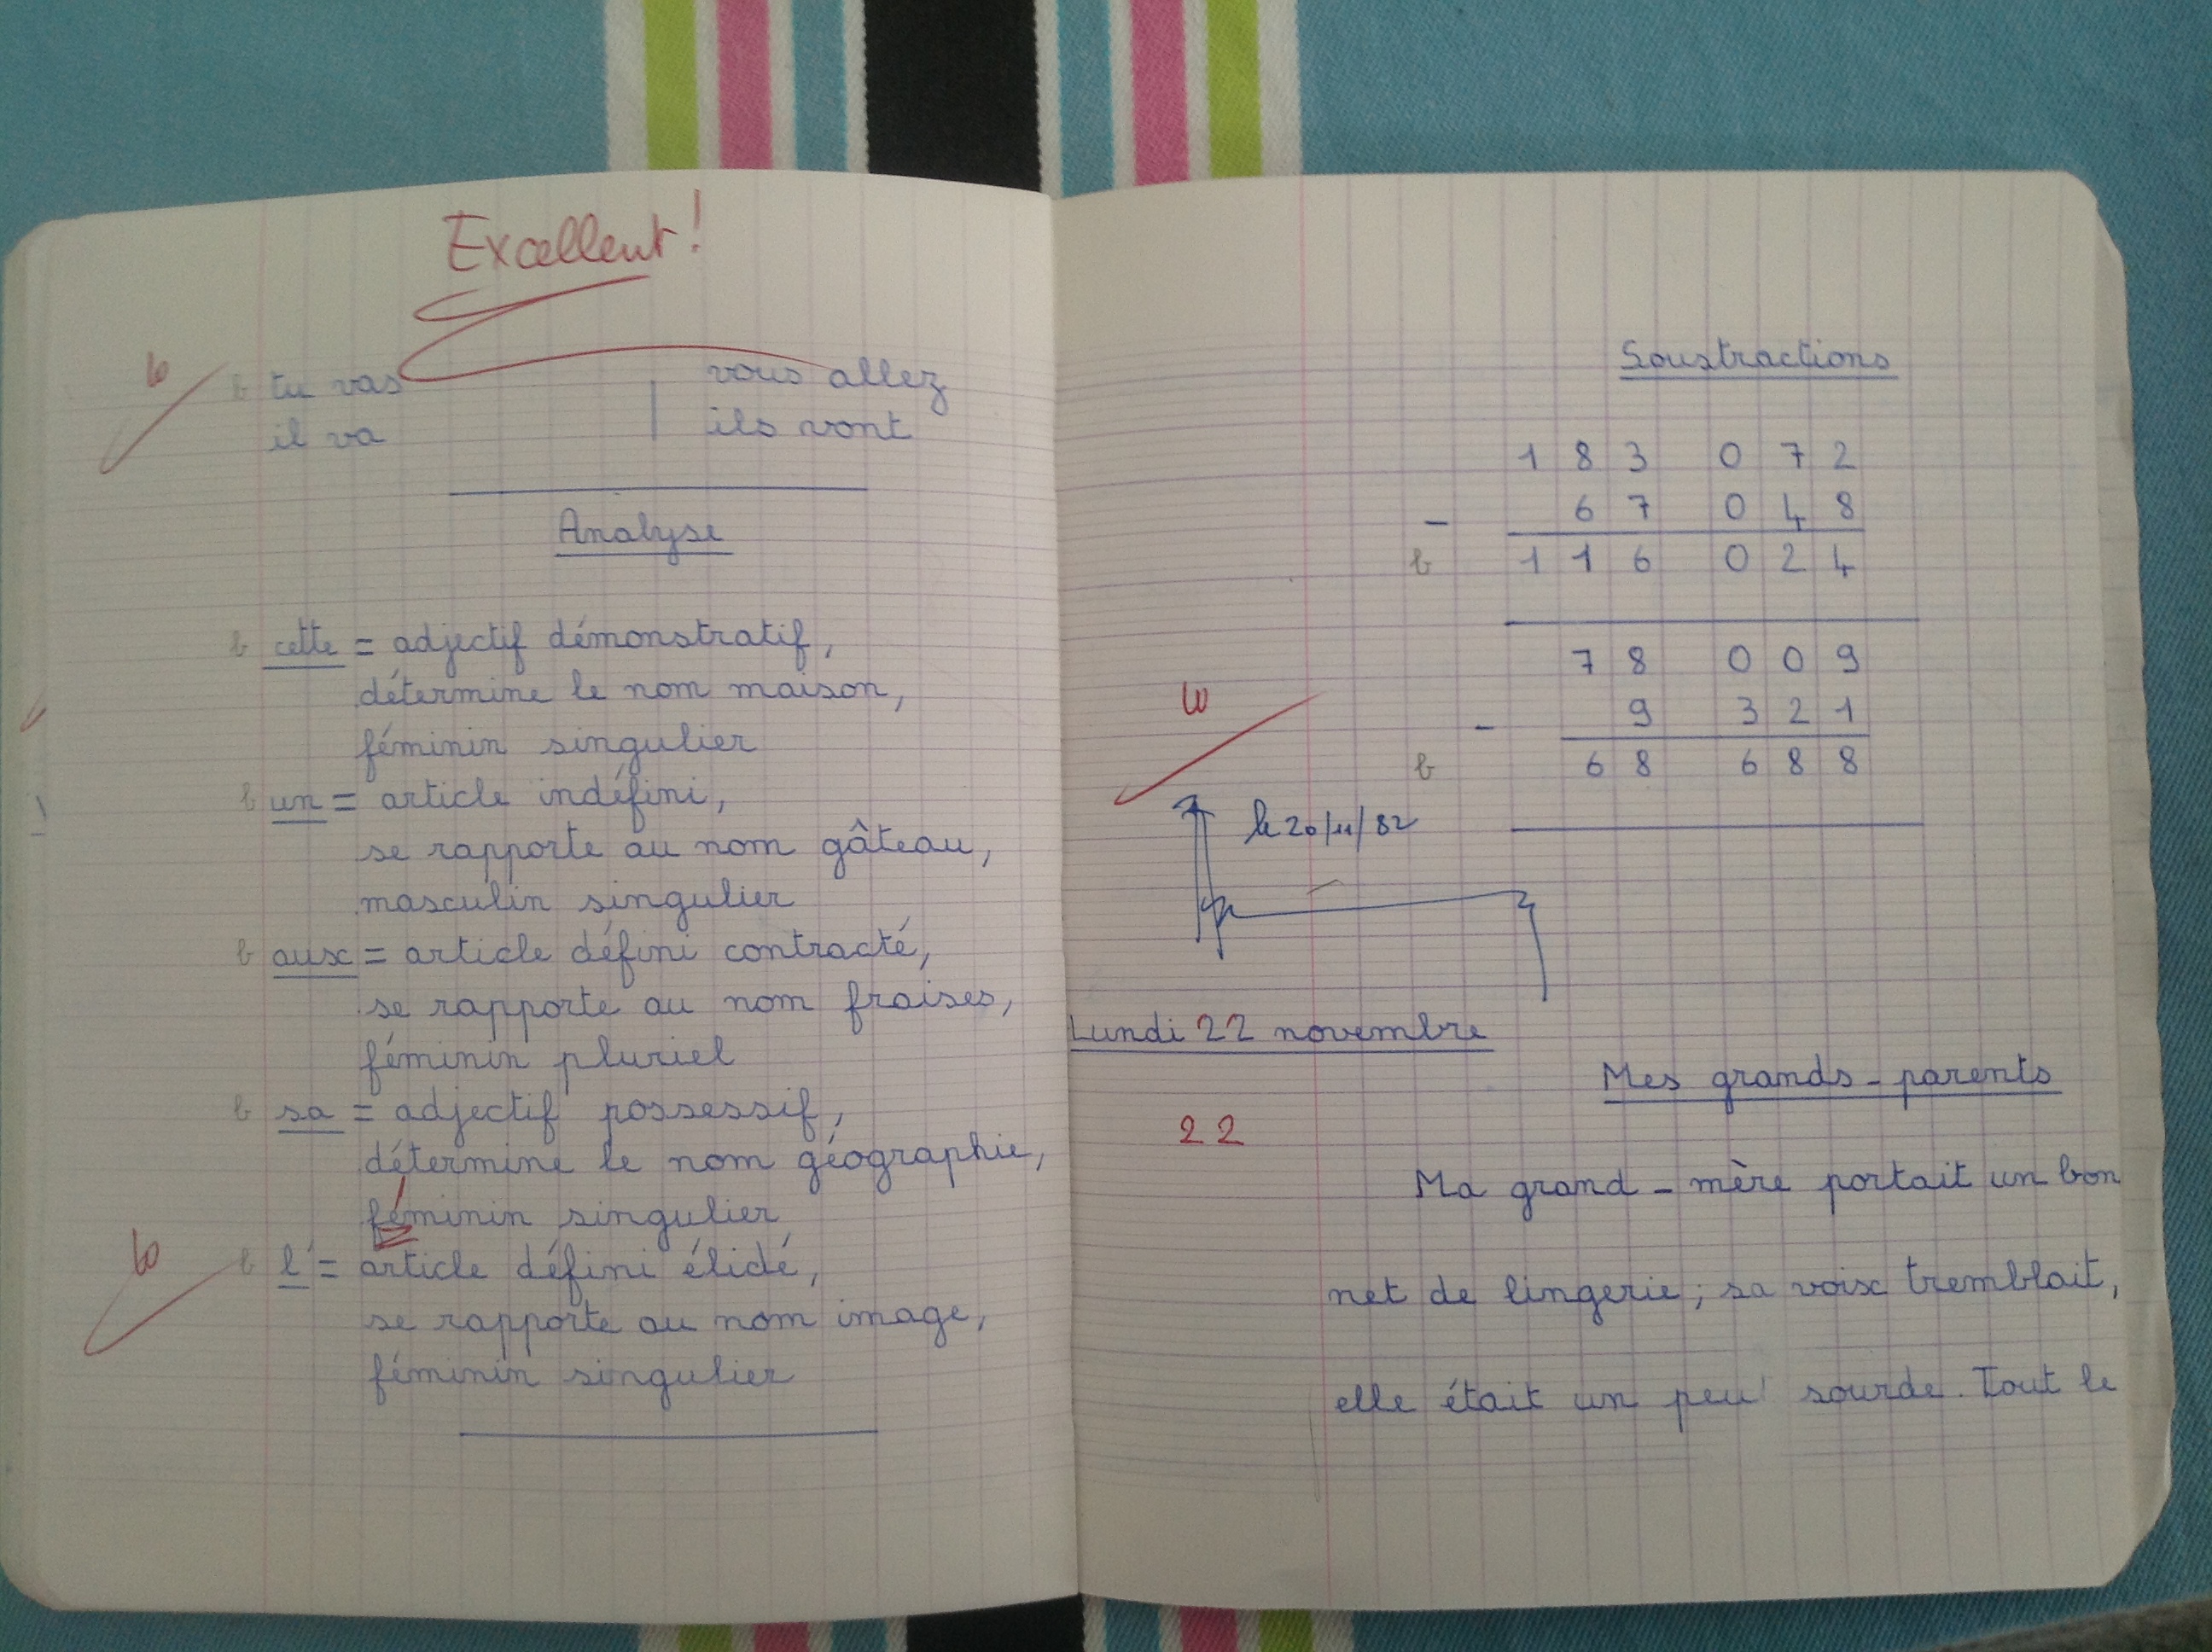 Excellent!
tu vas | vous allez
il va | ils vont
Analyse
cette = adjectif démonstratif,
détermine le nom maison,
féminin singulier
un = article indéfini,
se rapporte au nom gâteau,
masculin singulier
aux = article défini contracté,
se rapporte au nom fraises,
féminin pluriel
sa = adjectif possessif,
détermine le nom géographie,
féminin singulier
l' = article défini élidé,
se rapporte au nom image,
féminin singulier
Soustractions
1 8 3 0 7 2
- 6 7 0 4 8
1 1 6 0 2 4
7 8 0 0 9
- 9 3 2 1
6 8 6 8 8
le 20/11/82
Lundi 22 novembre
Mes grands-parents
22
Ma grand-mère portait un bon
net de lingerie; sa voix tremblait,
elle était un peu sourde. Tout le